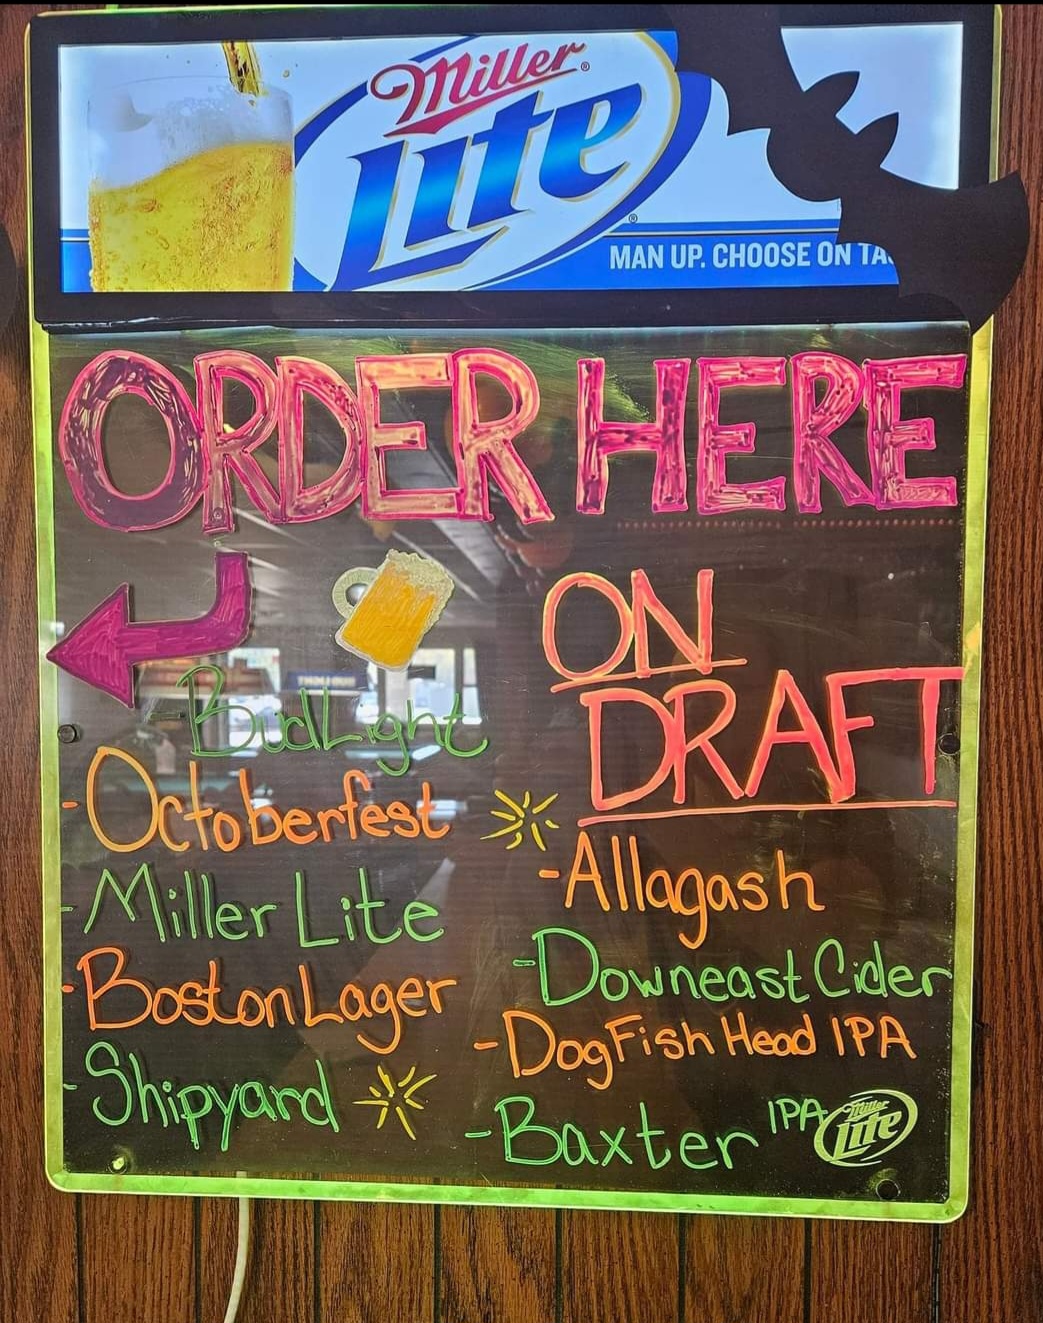 Miller
Lite
MAN UP. CHOOSE ON
ORDER HERE
ON
DRAFT
- Bud Light
- Octoberfest
- Miller Lite
- Boston Lager
- Shipyard
- Allagash
- Downeast Cider
- DogFish Head IPA
- Baxter IPA
Miller
Lite